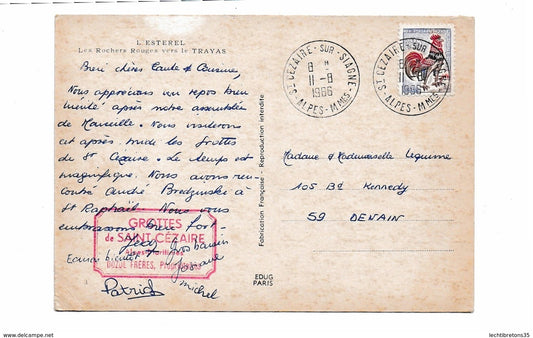 L'ESTEREL
Les Rochers Rouges vers le TRAYAS
Bien chères Tante & Cousine,
Nous apprécions un repos bien
mérité après notre
de Marseille. Nous visiterons
cet après-midi les grottes
de St Cézaire. Le temps est
magnifique. Nous avons ren-
contré André
St Raphaël. Nous vous
embrassons bien fort
GROTTES
de SAINT-CÉZAIRE
FRÈRES,
bientôt
Gros baisers
Josiane
michel
Patrick
3
Fabrication Française - Reproduction interdite
EDUG
PARIS
ST CÉZAIRE-SUR-SIAGNE
8 H
11-8
1966
ALPES-MMES
ST CÉZAIRE-SUR-SIAGNE
8
11-8
1966
ALPES-MMES
Madame & Mademoiselle
105 Bd Kennedy
59 DENAIN
www.delcampe.net
lechtibretons35